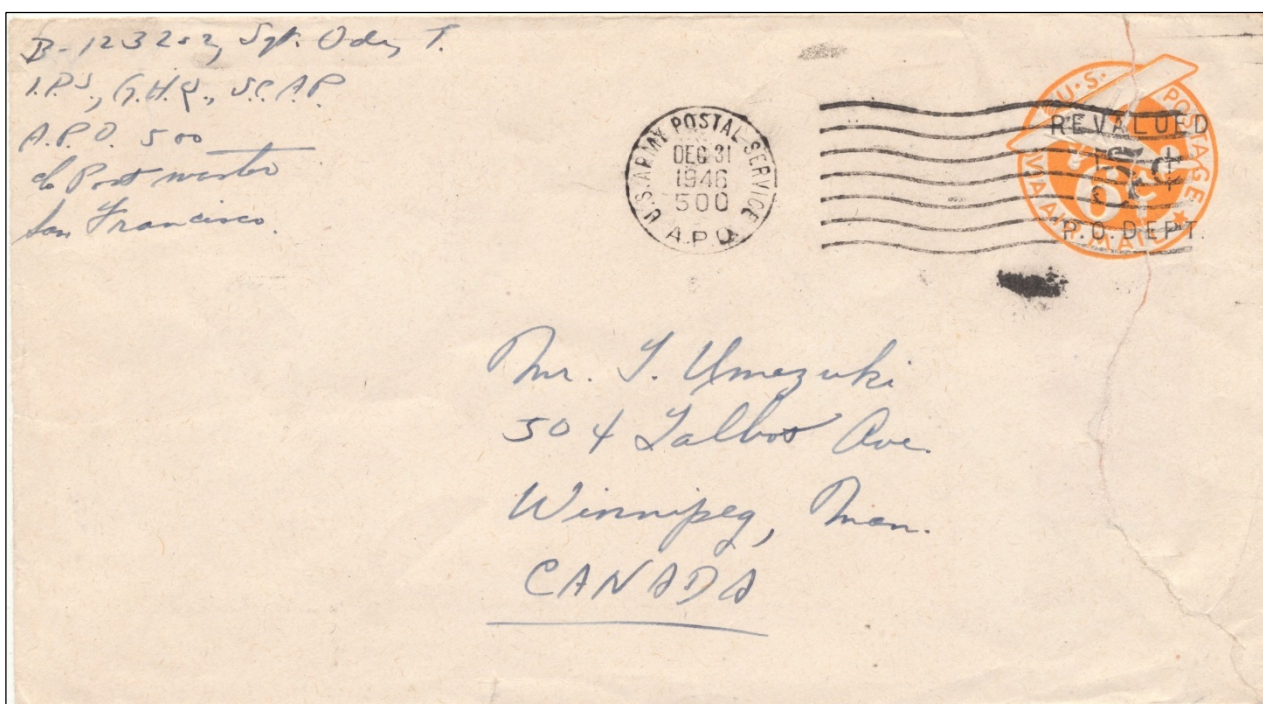 B-123202, Sgt. Oda, T.
I.P.S., G.H.Q., S.C.A.P.
A.P.O. 500
c/o Postmaster
San Francisco.
U.S. ARMY POSTAL SERVICE
DEC 31
1946
500
A.P.O.
U.S. POSTAGE
VIA AIR MAIL
6¢
REVALUED
5¢
P.O. DEPT.
Mr. T. Umezuki
504 Talbot Ave.
Winnipeg, Man.
CANADA